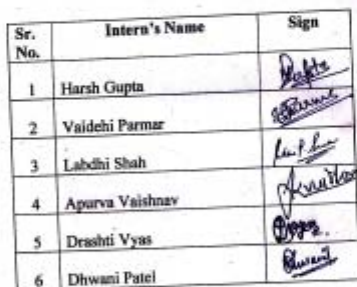 Sr. No. Intern's Name Sign
1 Harsh Gupta
2 Vaidehi Parmar
3 Labdhi Shah
4 Apurva Vaishnav
5 Drashti Vyas
6 Dhwani Patel